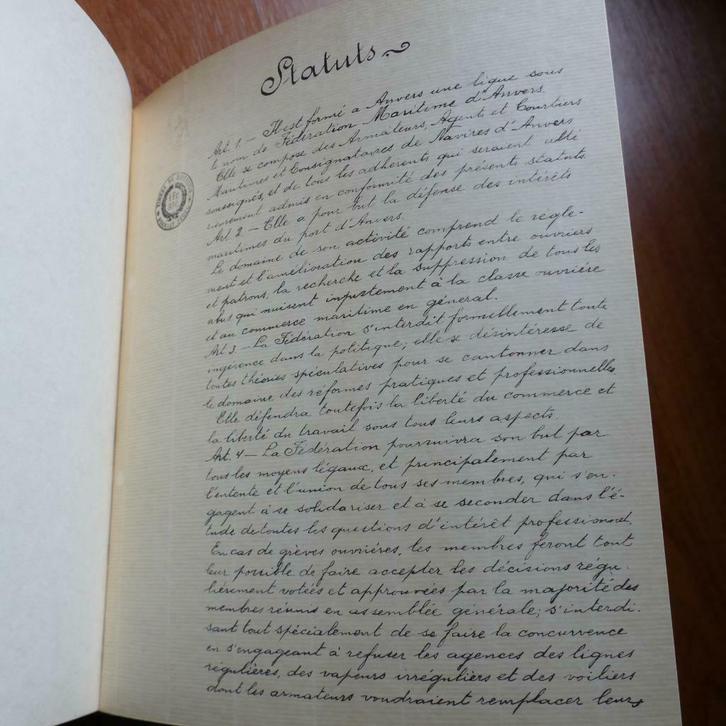 Statuts
Art. 1 — Il est formé a Anvers une ligue sous
le nom de Fédération Maritime d'Anvers.
Elle se compose des Armateurs, Agents et Courtiers
Maritimes et Consignataires de Navires d'Anvers
soussignés, et de tous les adhérents qui seraient ulté
rieurement admis en conformité des présents statuts.
Art 2 — Elle a pour but la défense des intérêts
maritimes du port d'Anvers.
Le domaine de son activité comprend le régle-
ment et l'amélioration des rapports entre ouvriers
et patrons, la recherche et la suppression de tous les
abus qui nuisent injustement à la classe ouvrière
et au commerce maritime en général.
Art 3 — La Fédération s'interdit formellement toute
ingérence dans la politique; elle se désintéresse de
toutes théories spéculatives pour se cantonner dans
le domaine des réformes pratiques et professionnelles
Elle défendra toutefois la liberté du commerce et
la liberté du travail sous tous leurs aspects.
Art. 4 — La Fédération poursuivra son but par
tous les moyens légaux, et principalement par
l'entente et l'union de tous ses membres, qui s'en-
gagent à se solidariser et à se seconder dans l'é-
tude de toutes les questions d'intérêt professionnel.
En cas de grèves ouvrières, les membres feront tout
leur possible de faire accepter les décisions régu-
lièrement votées et approuvées par la majorité des
membres réunis en assemblée générale; s'interdi-
sant tout spécialement de se faire la concurrence
en s'engageant à refuser les agences des lignes
régulières, des vapeurs irréguliers et des voiliers
dont les armateurs voudraient remplacer leurs